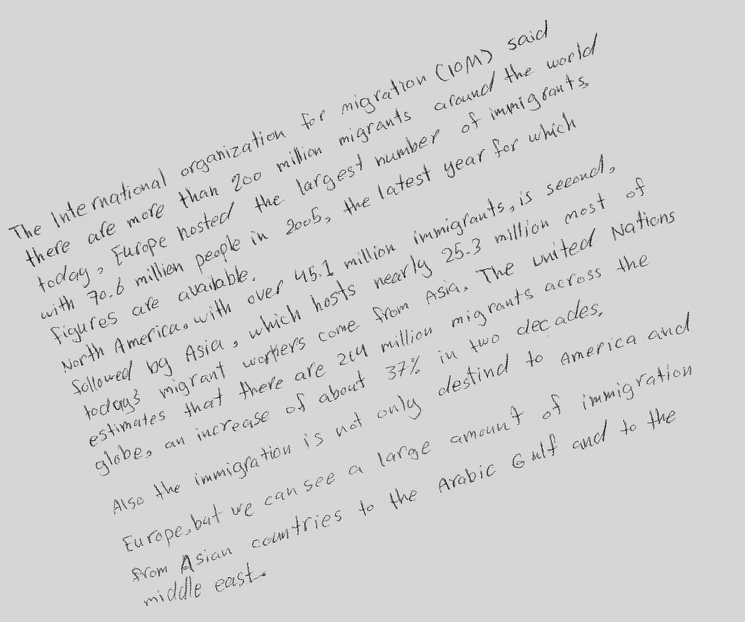 The International organization for migration (IOM) said
there are more than 200 million migrants around the world
today, Europe hosted the largest number of immigrants,
with 70.6 million people in 2005, the latest year for which
figures are available.
North America, with over 45.1 million immigrants, is second,
followed by Asia, which hosts nearly 25.3 million most of
todays migrant workers come from Asia. The United Nations
estimates that there are 214 million migrants across the
globe, an increase of about 37% in two decades.
Also the immigration is not only destind to America and
Europe, but we can see a large amount of immigration
from Asian countries to the Arabic Gulf and to the
middle east.